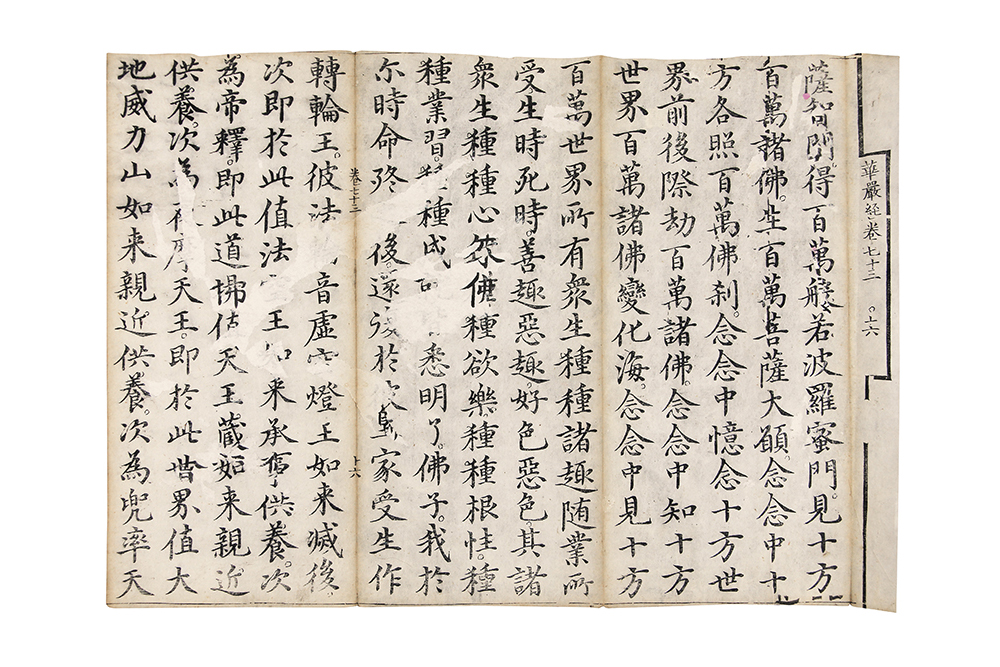 華嚴經卷七十三 ○十六
薩智門。得百萬般若波羅蜜門。見十方
百萬諸佛。生百萬菩薩大願。念念中十
方各照百萬佛刹。念念中憶念十方世
界前後際劫百萬諸佛。念念中知十方
世界百萬諸佛變化海。念念中見十方
百萬世界所有衆生種種諸趣随業所
受生時死時。善趣惡趣。好色惡色。其諸
衆生種種心種欲樂種種根性。種
種業習。種種成悉明了。佛子。我於
尒時命終後。還於家受生作
卷七十三 十六
轉輪王。彼法音虚空燈王如来滅後。
次即於此值法王如来承事供養。次
為帝釋。即此道場天王藏如来親近
供養。次為夜摩天王。即於此世界值大
地威力山如来親近供養。次為兜率天